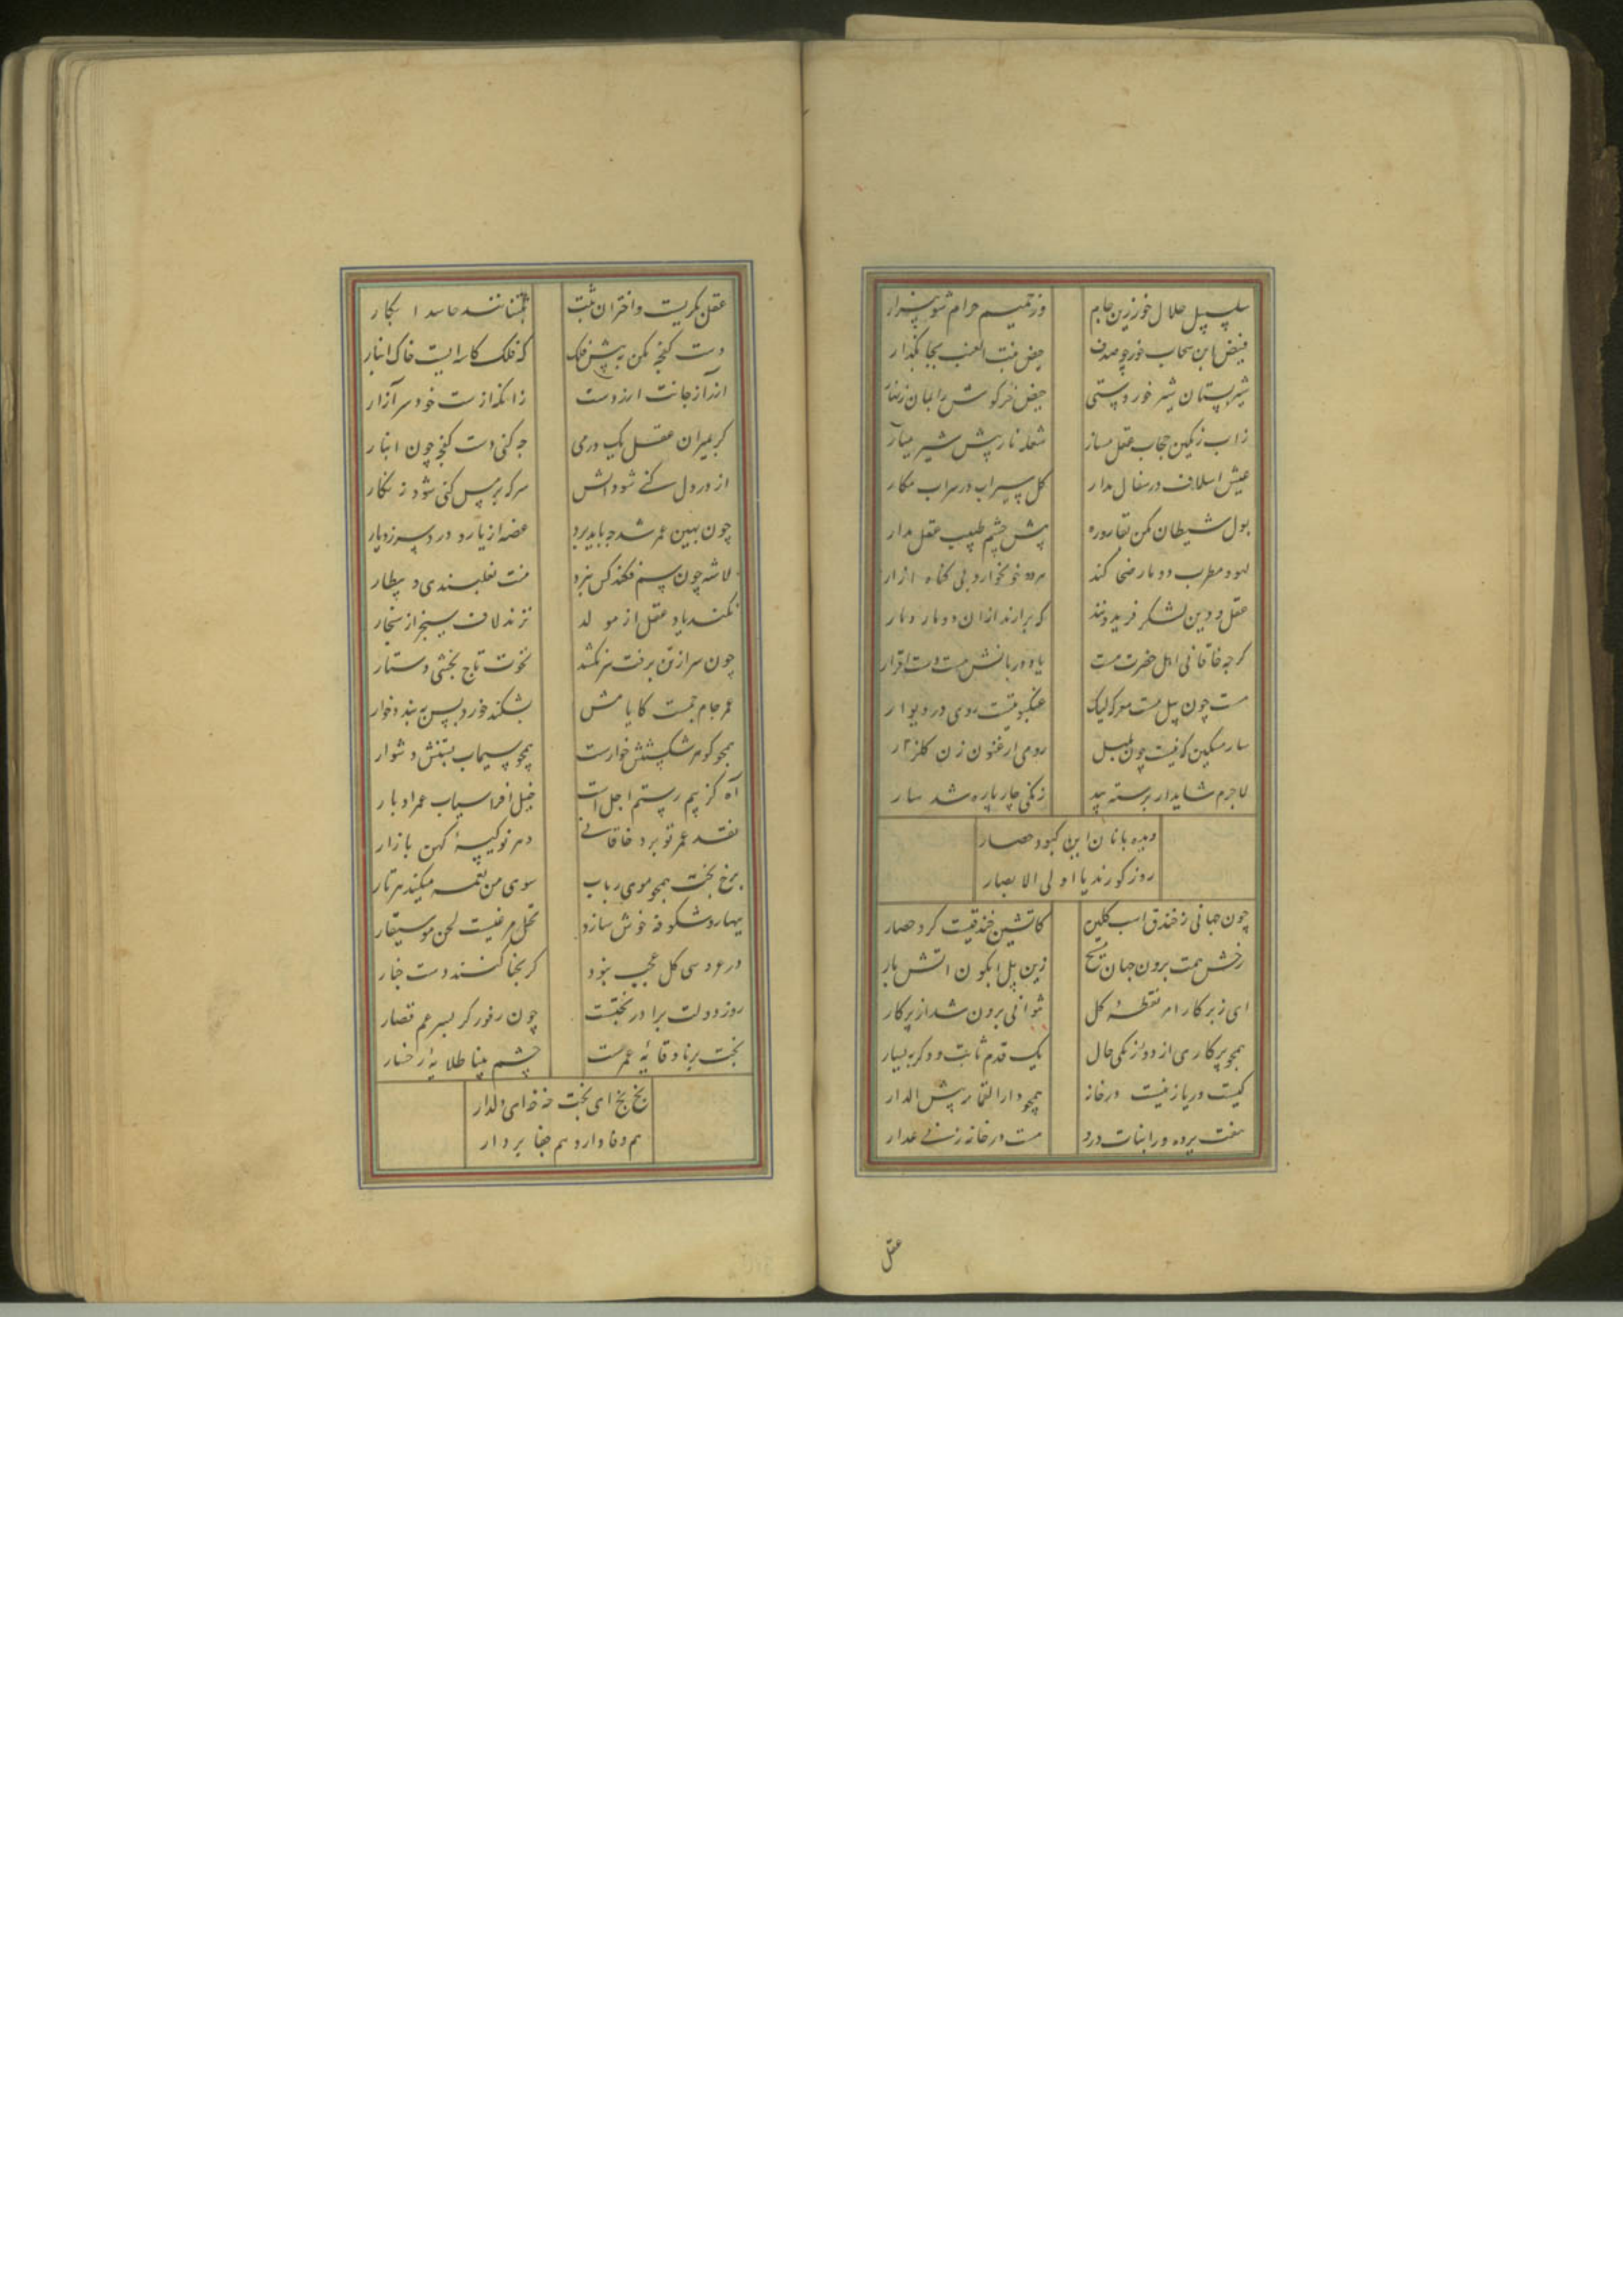 سلسبیل حلال خور زین جام وز حمیم حرام شو بیزار
فیض این سحاب خور چو صدف حیض بنت العنب بجا بگذار
شیر پستان شیر خورد ستی حیض خرگوش
زاب رنگین حجاب عقل مساز شعله نار پیش شیر میار
عیش اسلاف در سفال مدار گل سیراب در سراب مکار
بول شیطان مکن بقاروره پیش چشم طبیب عقل مدار
لهو و مطرب دو مار ضحاکند هر دو خونخوار و بی گناه ازار
عقل و دین لشکر فریدونند که برارند ازان دو مار دمار
کرچه خاقانی اهل حضرت نیست یاد دربانش هست دست اقرار
نیست چون پیل مست معرکه لیک عنکبوتیست روی در دیوار
سار مسکین که نیست چون بلبل رومی ارغنون زن گلزار
لاجرم شاید ار برسته بید زنگی چارپاره شد سار
دیده بانان این کبود حصار
روز کورند یا اولی الابصار
چون جهانی ز خندق اب گلین کاتشین خندقیست گرد حصار
رخش همت برون جهان زین پل ابگون اتش بار
ای ز پرکار امر نقطه کل نتوانی برون شد از پرکار
همچو پرکاری از دو رنگی حال یک قدم ثابت و دگر سیار
کیست دریاز نیست درخانه همچو دار القمامه پیش الدار
هفت پرده درا بنات درد هست در خانه زنی غدار
عقل
عقل بکریست و اختران ثیبت نشناسند حاسد ابکار
دست کفچه مکن به پیش فلک که فلک کاسه ایست خاک انبار
از دراز جانت از دوست زانکه از ست خود سر آزار
گر بمیزان عقل یک درمی چه کنی دست کفچه چون انبار
از در دل کنی شود اتش سرکه بر مس کنی شود زنگار
چون بهین عمر شد چه باید برد غصه از یار و درد سر ز دیار
لاشه چون سم فکند کس نبرد منت نعلبندی و بیطار
نکند یاد عقل از مولد نزند لاف سنجر از سنجار
چون سر از تن برفت سر نکشد نخوت تاج بخشی دستار
عمر جام جمست کایامش بشکند خرد پس ببندد خوار
همچو گوهر شکستنش خوارست همچو سیماب بستنش دشوار
آه کز بیم رستم اجل است خیل افراسیاب عمر اوبار
نقد عمر تو برد خاقانی دهر نو کیسه کهن بازار
برخ بخت همچو موی رباب سوی من نغمه میکند هر تار
بهار و شکوفه خوش سازد نحل مرغیست لحن موسیقار
در عروسی گل عجب نبود گر بحنا کنند دست چنار
روز دولت برادر بختست چون رفوگر پسر عم قصار
بخت برنا وقایه عمرست چشم بینا طلایه رخسار
بخ بخ ای بخت خه خه ای دلدار
هم وفادار و هم جفا بردار